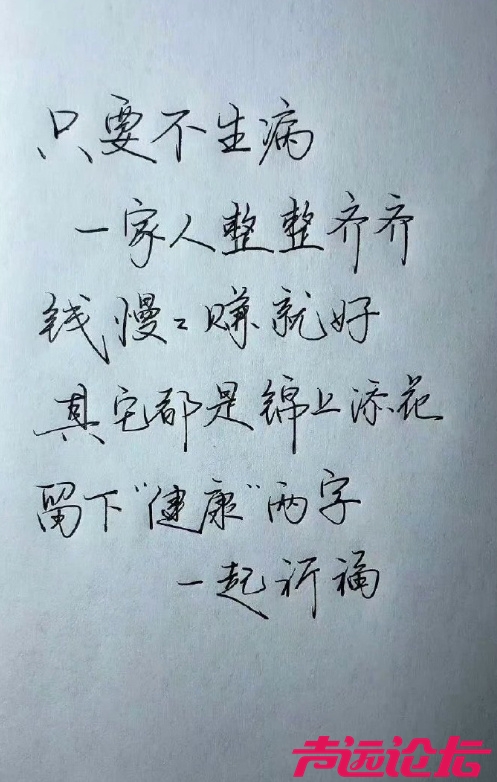 只要不生病
一家人整整齐齐
钱慢〻赚就好
其它都是锦上添花
留下“健康”两字
一起祈福
声远论坛